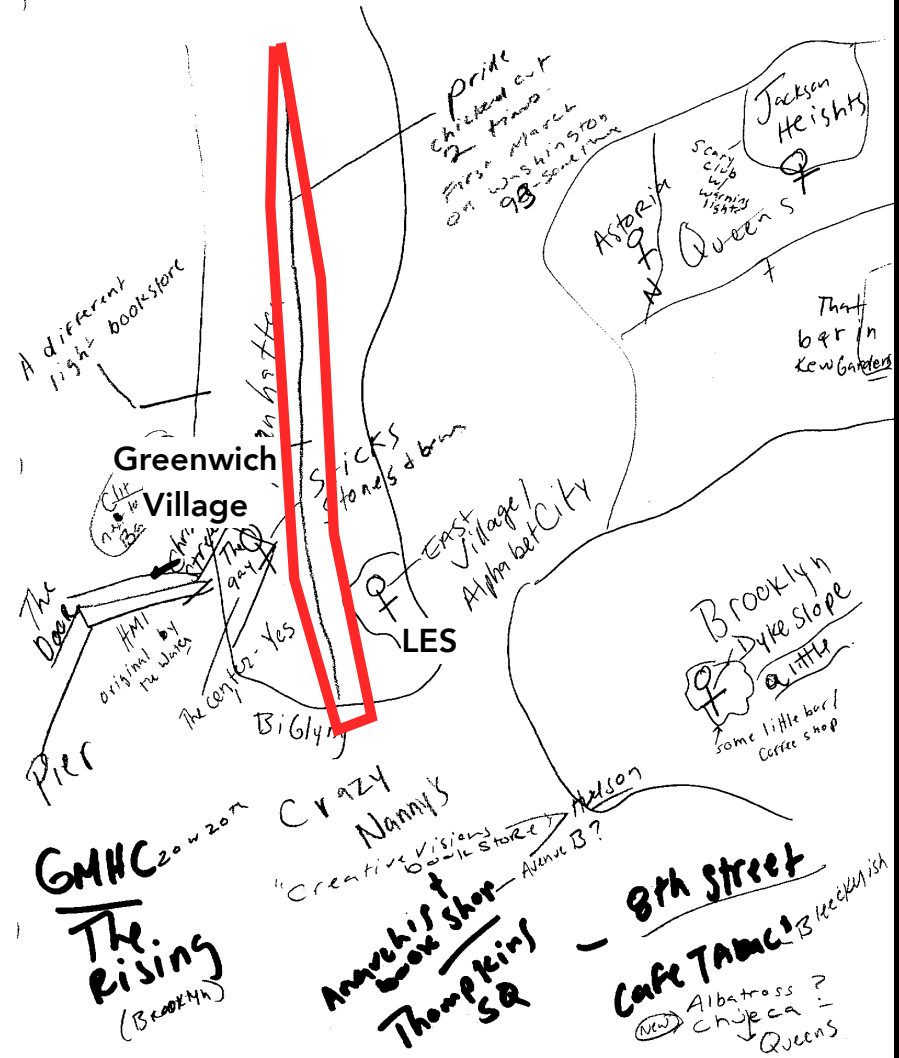 pride
chickened out
2 times.
First March
on Washington
93-sometime
Jackson
Heights
Scary
club
w/
warning
lights
Astoria
Queens
N
7
That
bar in
Kew Gardens
A different
light bookstore
Greenwich
Village
Clit
next to
Sticks
Stones &
The
gay
East
Village/
Alphabet City
LES
The
Dock
HMI
original by
the water
The center - Yes
BiGlyny
Pier
Brooklyn
Dyke Slope
a little
some little bar/
coffee shop
Crazy
Nanny's
"Creative Visions
book store"
Hudson
Avenue B?
GMHC 20 w 20th
The
Rising
(Brooklyn)
Anarchist
book shop
Thompkins
SQ
- 8th street
Cafe Tabac
Bleeckyish
(New) Albatross ?
Chueca -
Queens